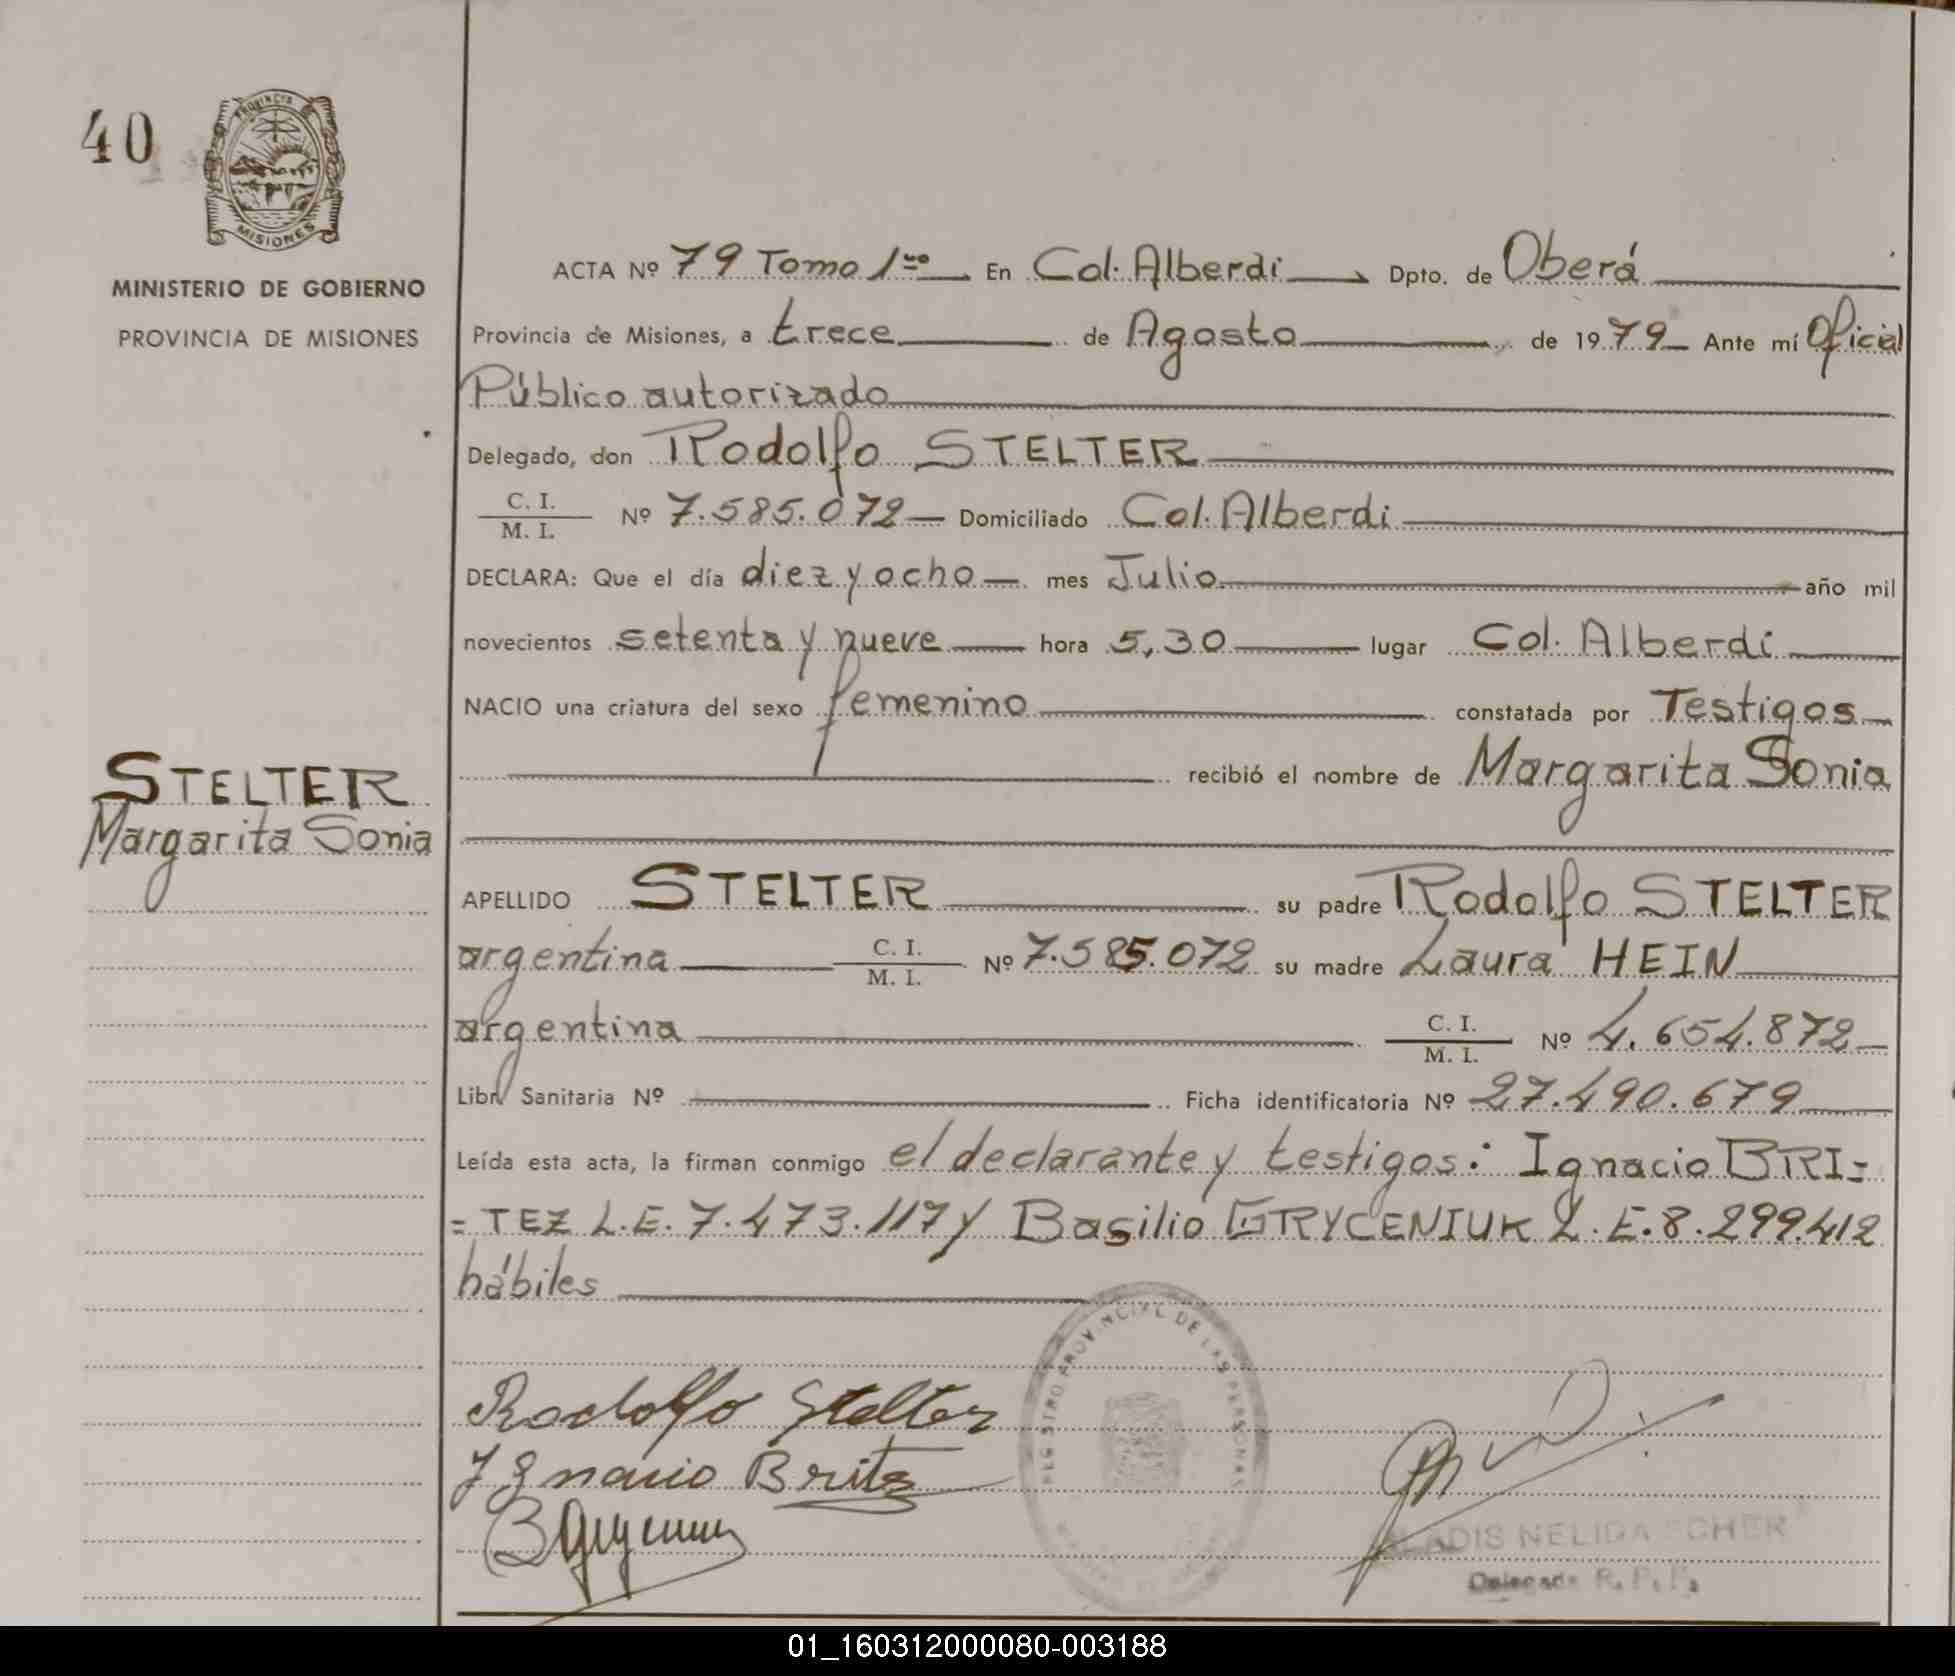 40
PROVINCIA
MISIONES
MINISTERIO DE GOBIERNO
PROVINCIA DE MISIONES
STELTER
Margarita Sonia
ACTA Nº 79 Tomo 1ro En Col. Alberdi Dpto. de Oberá
Provincia de Misiones, a trece de Agosto de 1979 Ante mí Oficial
Público autorizado
Delegado, don Rodolfo STELTER
C. I.
M. I. Nº 7.585.072 Domiciliado Col. Alberdi
DECLARA: Que el día diez y ocho mes Julio año mil
novecientos setenta y nueve hora 5,30 lugar Col. Alberdi
NACIO una criatura del sexo femenino constatada por Testigos
recibió el nombre de Margarita Sonia
APELLIDO STELTER su padre Rodolfo STELTER
argentina C. I. M. I. Nº 7.585.072 su madre Laura HEIN
argentina C. I. M. I. Nº 4.654.872
Libr. Sanitaria Nº Ficha identificatoria Nº 27.490.679
Leída esta acta, la firman conmigo el declarante y testigos: Ignacio BRI=
=TEZ L.E. 7.473.117 y Basilio GRYCENIUK L.E. 8.299.412
hábiles
REGISTRO PROVINCIAL DE LAS PERSONAS
Rodolfo Stelter
Ignacio Brites
GLADIS NELIDA SCHER
Delegada R. P. P.
01_160312000080-003188